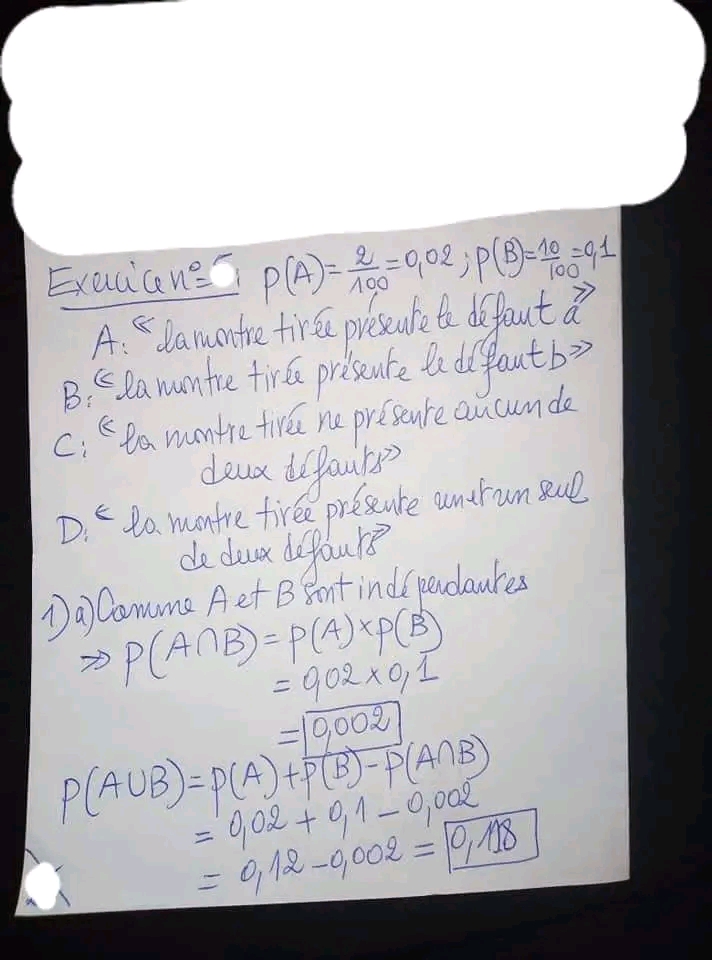 Exercice n°
P(A)=2/100=0,02 ; P(B)=10/100=0,1
A: « la montre tirée présente le défaut a »
B: « la montre tirée présente le défaut b »
C: « la montre tirée ne présente aucun de
deux défauts »
D: « la montre tirée présente un et un seul
de deux défauts »
1) a) Comme A et B sont indépendantes
⇒ P(A∩B) = P(A)×P(B)
= 0,02 × 0,1
= 0,002
P(A∪B) = P(A) + P(B) - P(A∩B)
= 0,02 + 0,1 - 0,002
= 0,12 - 0,002 = 0,118